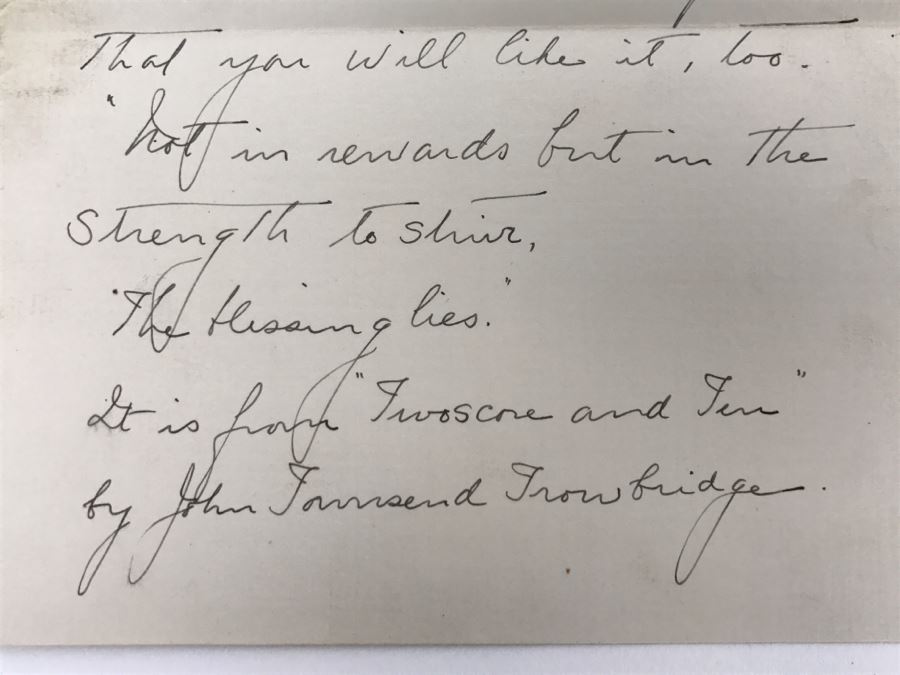 That you will like it, too.
"Not in rewards but in the
Strength to strive,
"The blessing lies."
It is from "Twoscore and Ten"
by John Townsend Trowbridge.